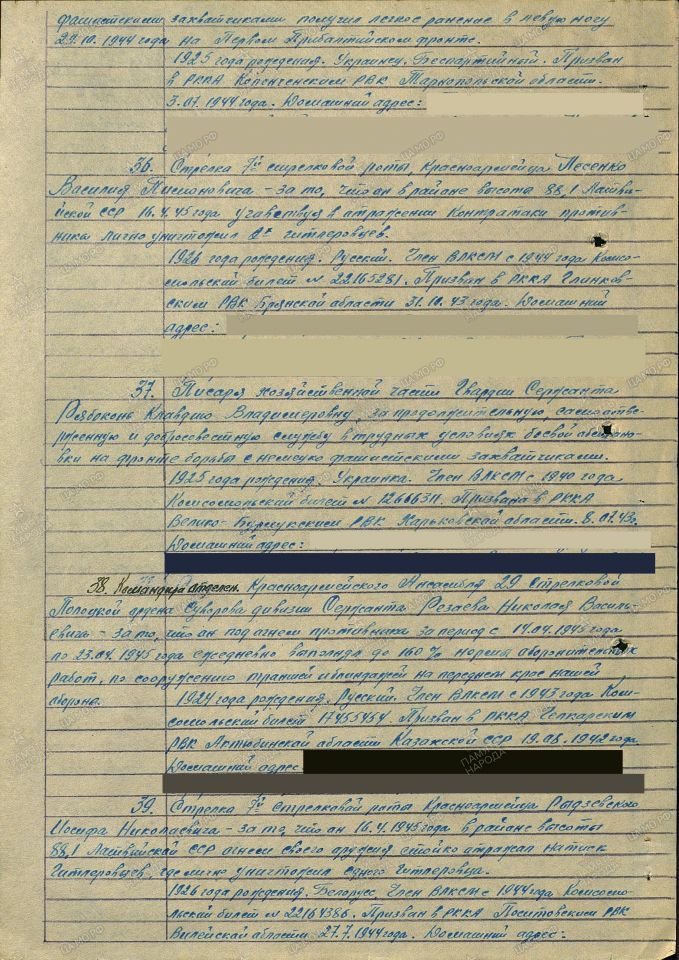 фашистскими захватчиками получил легкое ранение в левую ногу
29.10.1944 года на Первом Прибалтийском фронте.
1925 года рождения. Украинец. Беспартийный. Призван
в РККА РВК Тарнопольской области.
3.07.1944 года. Домашний адрес:
36. Стрелка 7й стрелковой роты, Красноармейца Песенко
Василия – за то, что он в районе высоты 88,1 Латви-
йской ССР 16.4.45 года участвуя в отражении контратаки против-
ника лично уничтожил 2х гитлеровцев.
1926 года рождения. Русский. Член ВЛКСМ с 1944 года Комсо-
мольский билет № 22165281. Призван в РККА Глинков-
ским РВК Брянской области 31.10.43 года. Домашний
адрес:
37. Писаря хозяйственной части Гвардии Сержанта
Рябоконь Клавдию Владимировну, за продолжительную, самоотве-
рженную и добросовестную службу в трудных условиях боевой обстано-
вки на фронте борьбы с немецко фашистскими захватчиками.
1925 года рождения. Украинка. Член ВЛКСМ с 1940 года
Комсомольский билет № 12666311. Призвана в РККА
Велико-Бурлукским РВК Харьковской области. 8.07.43г.
Домашний адрес:
38. Командира отделен. Красноармейского Ансамбля 29 Стрелковой
Полоцкой ордена Суворова дивизии Сержанта Резаева Николая Василь-
евича – за то, что он под огнем противника за период с 14.04.1945 года
по 23.04.1945 года ежедневно выполнял до 160% нормы оборонительных
работ, по сооружению траншей и блиндажей на переднем крае нашей
обороны.
1924 года рождения. Русский. Член ВЛКСМ с 1943 года Ком-
сомольский билет 17455464. Призван в РККА Челкарским
РВК Актюбинской области Казахской ССР 19.08.1942 года.
Домашний адрес
39. Стрелка 7й стрелковой роты Красноармейца Рыдзевского
Иосифа Николаевича – за то, что он 16.4.1945 года в районе высоты
88,1 Латвийской ССР огнем своего оружия стойко отражал натиск
гитлеровцев, где лично уничтожил одного гитлеровца.
1926 года рождения. Белорус. Член ВЛКСМ с 1944 года Комсомо-
льский билет № 22164386. Призван в РККА Поставским РВК
Вилейской области 27.7.1944 года. Домашний адрес: